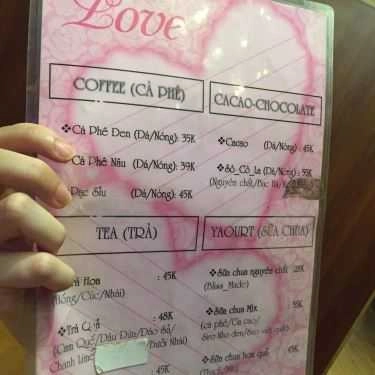 Love
COFFEE (CÀ PHÊ)
❖Cà Phê Đen (Đá/Nóng): 35K
Cà Phê Nâu (Đá/Nóng): 39K
Bạc Sỉu (Đá/Nóng): 45K
CACAO-CHOCOLATE
❖Cacao (Đá/Nóng) : 45K
❖Sô_Cô_la (Đá/Nóng) : 55K
(Nguyên chất/Bạc Hà/
TEA (TRÀ)
Trà Hoa : 45K
(Hồng/Cúc/Nhài)
❖Trà Quả : 48K
(Cam Quế/Dâu Dứa/Đào Sả/
Chanh
YAOURT (SỮA CHUA)
❖Sữa chua nguyên chất : 25K
❖Sữa chua Mix : 35K
(cà phê/Ca cao/
❖Sữa chua hoa quả